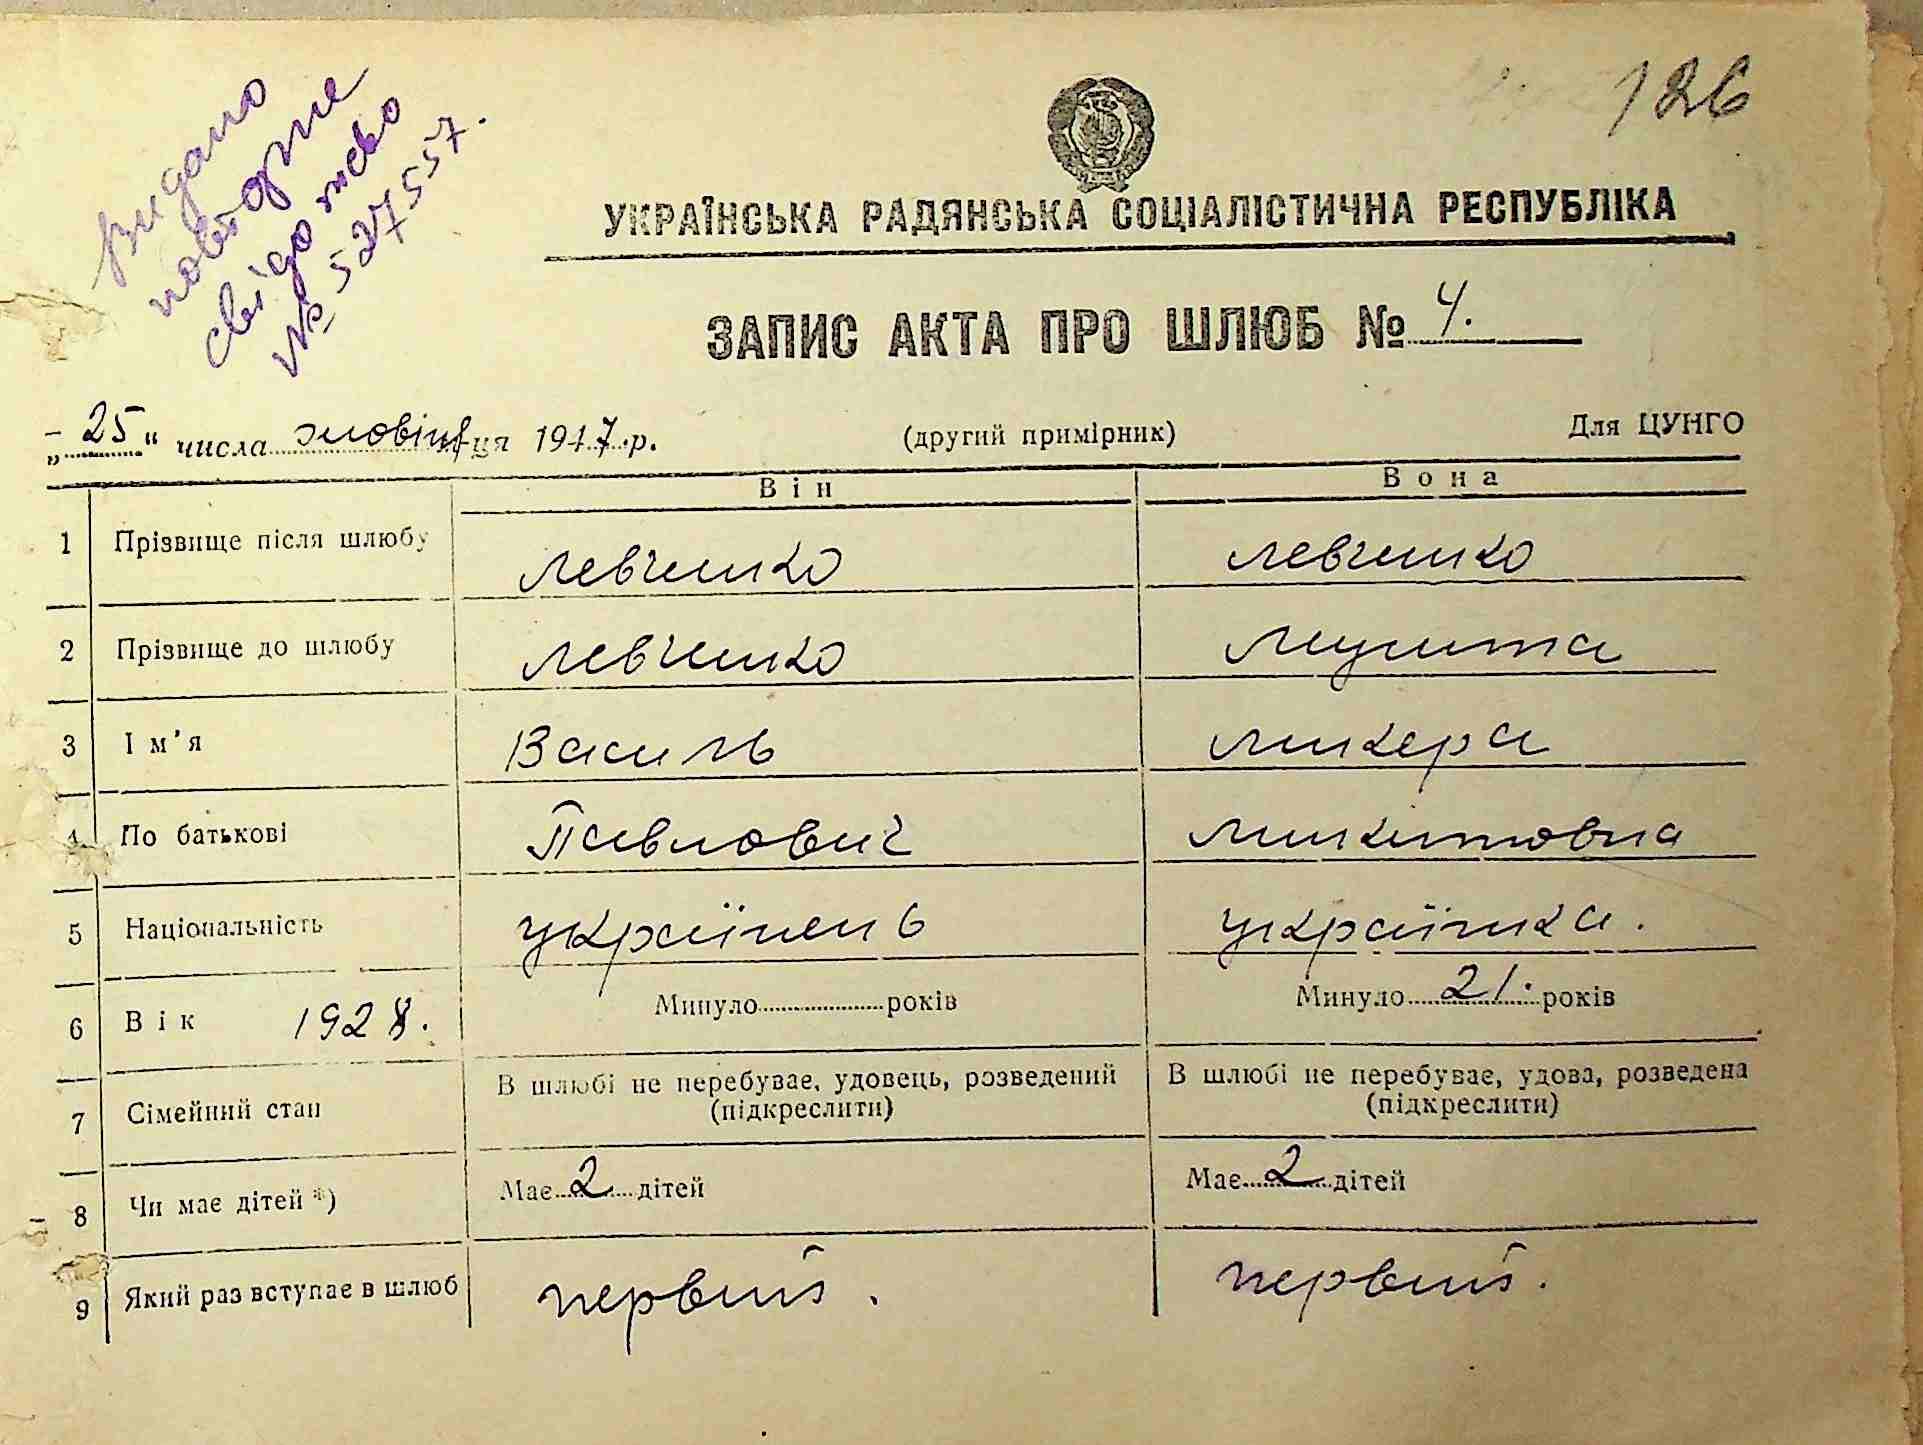 Видано
повторне
свідотство
№ 527557.
126
УКРАЇНСЬКА РАДЯНСЬКА СОЦІАЛІСТИЧНА РЕСПУБЛІКА
ЗАПИС АКТА ПРО ШЛЮБ № 4.
„25“ числа жовтня ця 1947 р. (другий примірник) Для ЦУНГО
Він Вона
1 Прізвище після шлюбу Левченко Левченко
2 Прізвище до шлюбу Левченко
3 Ім'я Василь Ликера
4 По батькові Павлович Микитовна
5 Національність українець українка.
6 Вік 1928. Минуло ........ років Минуло 21. років
7 Сімейний стан В шлюбі не перебуває, удовець, розведений (підкреслити) В шлюбі не перебуває, удова, розведена (підкреслити)
8 Чи має дітей *) Має 2 дітей Має 2 дітей
9 Який раз вступає в шлюб первий. первий.